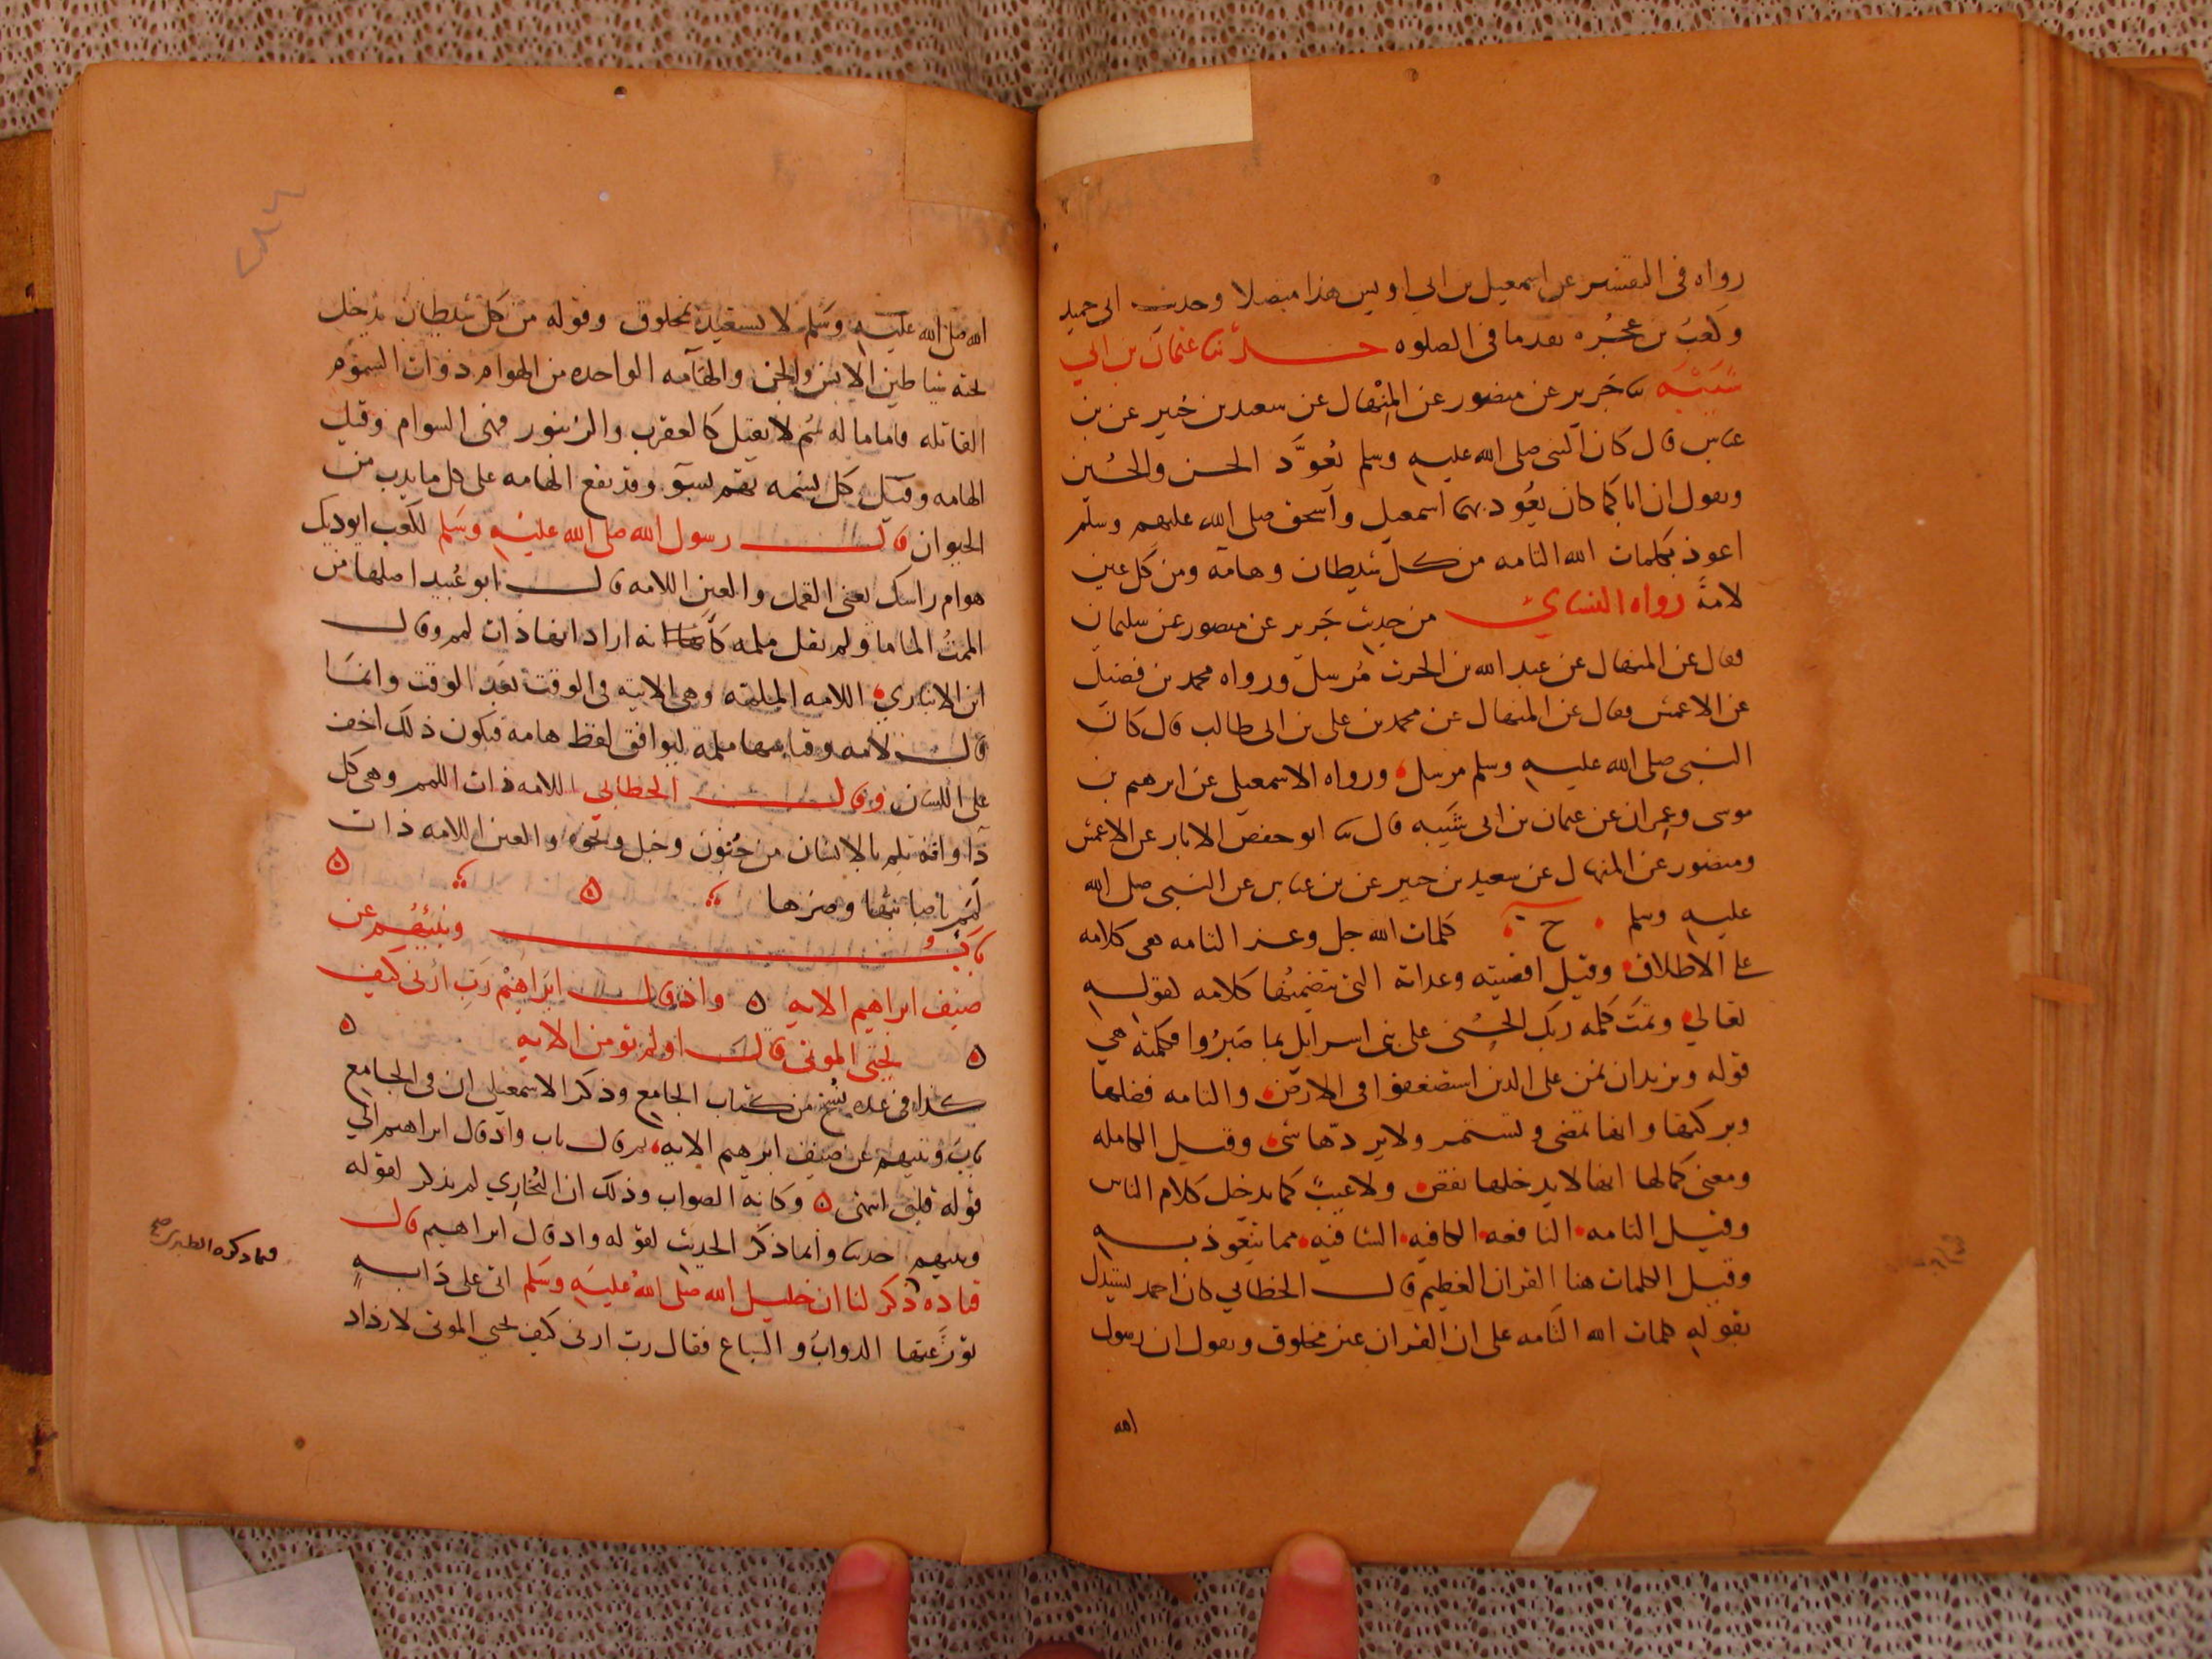 رواه فى التفسير عن اسمعيل بن ابي اويس هذا متصلا وحديث ابى حميد
وكعب بن عجره تقدما فى الصلوه حدثنا عثمان بن ابي
شيبه نا جرير عن منصور عن المنهال عن سعيد بن جبير عن بن
عباس قال كان النبى صلى الله عليه وسلم يُعوَّد الحسن والحُسين
ويقول ان اباكما كان يعُود بهما اسمعيل واسحق صلى الله عليهم وسلم
اعوذ بكلمات الله التامه من كل شيطان وهامه ومن كل عين
لامةً رواه النسائي من حديث جرير عن منصور عن سليمان
فقال عن المنهال عن عبد الله بن الحرث مُرسل ورواه محمد بن فضيل
عن الاعمش فقال عن المنهال عن محمد بن على بن ابى طالب قال كان
النبى صلى الله عليه وسلم مرسل ورواه الاسمعيلى عن ابرهيم بن
موسى وعمران عن عثمان بن ابى شيبه قال نا ابو حفص الابار عن الاعمش
ومنصور عن المنهال عن سعيد بن جبير عن بن عباس عن النبى صلى الله
عليه وسلم ح كلمات الله جل وعز التامه هى كلامه
على الاطلاق وقيل اقضيته وعداته التى تتضمنُها كلامه لقوله
تعالي وتمّت كلمه ربك الحُسْنى على بنى اسرايل بما صَبرُوا فكلمته هي
قوله ونريد ان نمن على الذين استضعفوا فى الارض والتامه فضلها
وبركتها وانها تمضى وتستمر ولا يردّها شى وقيل الكامله
ومعنى كمالها انها لا يدخلها نقص ولا عيبٌ كما يدخل كلام الناس
وقيل التامه النافعه الكافيه الشافيه مما يتعوذ به
وقيل الكلمات هنا القران العظيم قال الخطابي كان احمد يستدل
بقوله بكلمات الله التامه على ان القران غير مخلوق ويقول ان رسول
الله
الله صلى الله عليه وسلم لا يستعيذ بمخلوق وقوله من كل شيطان يدخل
تحته شياطين الانس والجن والهامه الواحده من الهوام ذوات السموم
القاتله فاما ما له سُم لا يقتل كالعقرب والزنبور فهى السوام وقيل
الهامه وقيل كل نسمه تهم بسوٓ وقد تقع الهامه على كل ما يدب من
الحيوان قال رسول الله صلى الله عليه وسلم لكعب ايوذيك
هوام راسك يعنى القمل والعين اللامه قال ابو عُبيد اصلها من
الممتُ الماما ولم يقل ملمه كأنه اراد انها ذات لمم وقال
ابن الانباري اللامه الملمه وهى الاتيه فى الوقت بعد الوقت وانما
قال لامه وقياسها ملمه ليوافق لفظ هامه فيكون ذلك اخف
على اللسان وقال الخطابي اللامه ذات اللمم وهى كل
دآ وافة تلم بالانسان من جُنون وخبل ونحوه والعين اللامه ذات
لَمَم باصابتها وضرها
باب ونبئهُم عن
ضيف ابراهيم الايه واذ قال ابراهيم رب ارنى كيف
تحيي الموتى قال اولم تومن الايه
كذا فى عده نُسخ من كتاب الجامع وذكر الاسمعيلى ان فى الجامع
باب ونبيهم عن ضيف ابرهيم الايه ثم قال باب واذ قال ابراهيم الي
قوله قلبي انتهى وكانه الصواب وذلك ان البُخاري لم يذكر لقوله
ونبيهم حديثا وانما ذكر الحديث لقوله واذ قال ابراهيم قال
قتاده ذكر لنا ان خليل الله صلى الله عليه وسلم اتى على دابه
توزعتها الدواب والسباع فقال رب ارنى كيف تحيي الموتى لازداد
فيما ذكره الطبرى صح